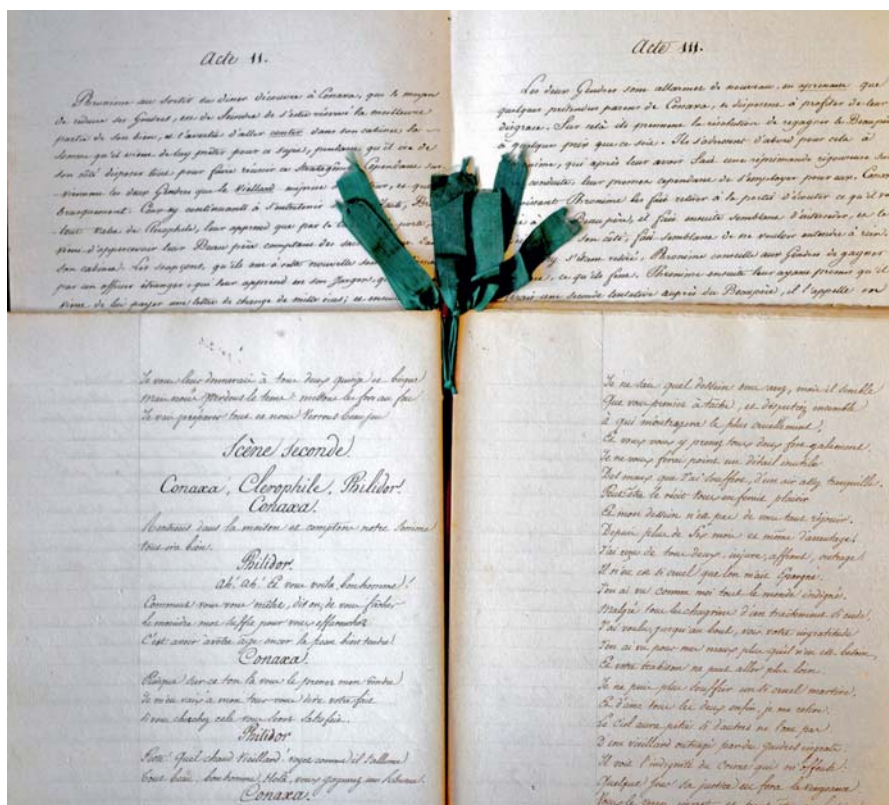 Acte II.
Phronime au sortir du diner découvre à Conaxa, que le moyen
de réduire ses Gendres, est de feindre de s'etre réservé la meilleure
partie de son bien, et l'avertit d'aller conter dans son cabinet la
somme qu'il vient de luy prêter pour ce sujet, pendant qu'il va de
son côté disposer tout pour faire réussir ce stratagême. Cependant sur-
viennent les deux Gendres que le Vieillard
brusquement. Ceux cy continuants à s'entretenir
valet de Clerophile, leur apprend que par le
vient d'appercevoir leur Beau pere comptant des sacs
son cabinet. Les soupçons, qu'ils ont à cette nouvelle sont
par un officier étranger, qui leur apprend en son Jargon,
vient de lui payer une lettre de change de mille écus; et
Acte III.
Les deux Gendres sont allarmés de nouveau, en apprenant que
quelques prétendus parens de Conaxa, se disposent à profiter de leur
disgrace. Sur cela ils prennent la résolution de regagner le Beaupere
à quelque prix que ce soit. Ils s'adressent d'abord pour cela à
qui après leur avoir fait une réprimande rigoureuse
conduite, leur promet cependant de s'employer pour eux.
Phronime les fait retirer à la porte d'écouter ce qu'il
Beaupère, et fait ensuite semblant d'intercéder, et
son côté, fait semblant de ne vouloir entendre à rien.
s'étant retiré, Phronime conseille aux Gendres de gagner
ce qu'ils font. Phronime ensuite leur ayant promis qu'il
une seconde tentative auprès du Beaupère, il l'appelle en
Je vous leur donnerai à tous deux
mais nous perdons le tems mettons le fer au feu
Je vais préparer tout et nous verrons beau jeu
Scène seconde
Conaxa, Clerophile, Philidor.
Conaxa.
Rentrons dans la maison et comptons notre somme
tout va bien.
Philidor.
Ah! Ah! Et vous voila bonhomme!
Comment vous vous mêlez, dit on, de vous fâcher
le moindre mot suffit pour vous effaroucher
C'est avoir à votre âge encor la peau bien tendre!
Conaxa.
Puisque sur ce ton là vous le prenez mon Gendre
Je m'en vais à mon tour vous dire votre fait
si vous cherchez cela vous serez satisfait.
Philidor
Quel chaud Vieillard! voyez comme il s'allume!
Tout beau, bonhomme, Holà, vous gagnerez un rhume.
Conaxa.
Je ne sais quel dessein vous avez, mais il semble
Que vous preniez à tâche, et disputiez ensemble
à qui m'outragera le plus cruellement,
Et vous vous y prenez tous deux fort galamment.
Je ne vous ferai point un détail inutile
Des maux que J'ai soufferts, d'un air assez tranquille.
Peut être le récit vous en feroit plaisir
Et mon dessein n'est pas de vous tout réjouir.
Depuis plus de six mois et même d'avantage!
J'ai reçu de tous deux, injure, affront, outrage!
Il n'en est si cruel que l'on m'ait épargné.
J'en ai vu comme moi tout le monde indigné.
Malgré tous les chagrins d'un traitement si rude!
J'ai voulu jusqu'au bout, voir votre ingratitude
J'en ai vu pour mes maux plus qu'il n'en est besoin,
Et votre trahison ne peut aller plus loin.
Je ne puis plus souffrir un si cruel martire.
Et d'avec tous les deux enfin, je me retire.
Le Ciel aura pitié si d'autres ne l'ont pas
D'un vieillard outragé par des gendres ingrats.
Il voit l'indignité de ceux qui m'offense!
Quelque Jour sa justice en fera la vengeance